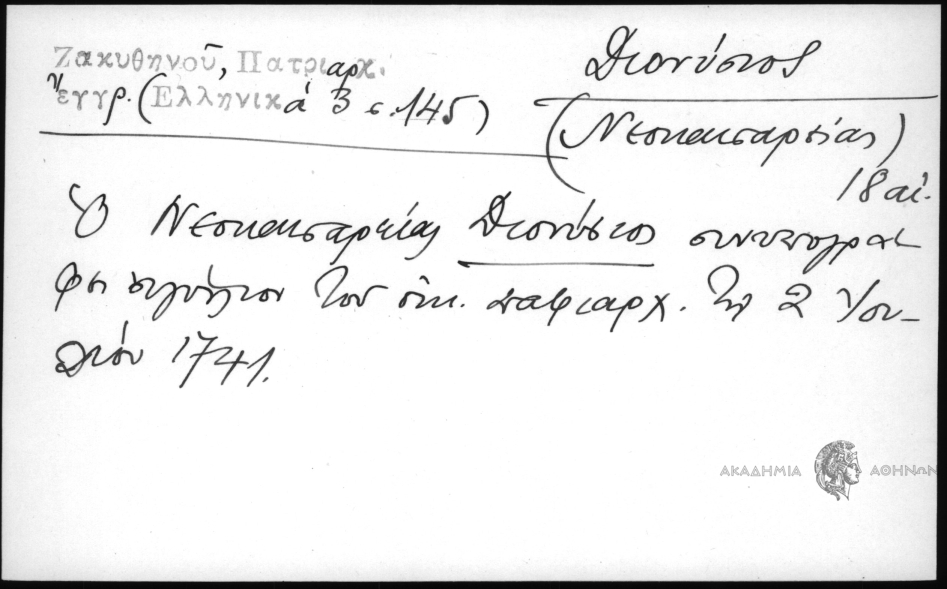 Ζακυθηνοῦ, Πατριαρχ.
ἔγγρ. (Ἑλληνικά 3 σ. 145)
Διονύσιος
(Νεοκαισαρείας)
18 αἰ.
Ὁ Νεοκαισαρείας Διονύσιος συνυπογρά-
φει σιγίλλιον τοῦ οἰκ. πατριαρχ. τῇ 2 Ἰου-
λίου 1741.
ΑΚΑΔΗΜΙΑ ΑΘΗΝΩΝ